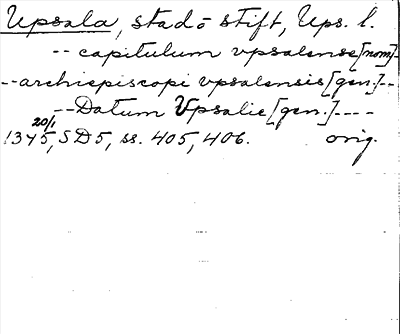 Upsala, stad o stift, Ups. l.
-- capitulum vpsalense [nom]-
--archiepiscopi vpsalensis [gen.]--
--Datum Vpsalie [gen.]----
20/1
1345, SD5, ss. 405, 406. orig.